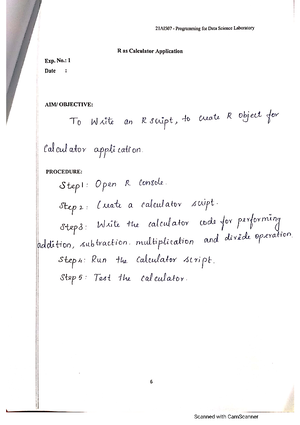 21AD307 - Programming for Data Science Laboratory
R as Calculator Application
Exp. No.: 1
Date :
AIM/ OBJECTIVE:
To Write an R script, to create R object for
Calculator application.
PROCEDURE:
Step1: Open R console.
Step 2: Create a calculator script.
Step3: Write the calculator code for performing
addition, subtraction. multiplication and divide operation.
Step 4: Run the calculator script.
Step 5: Test the calculator.
6
Scanned with CamScanner